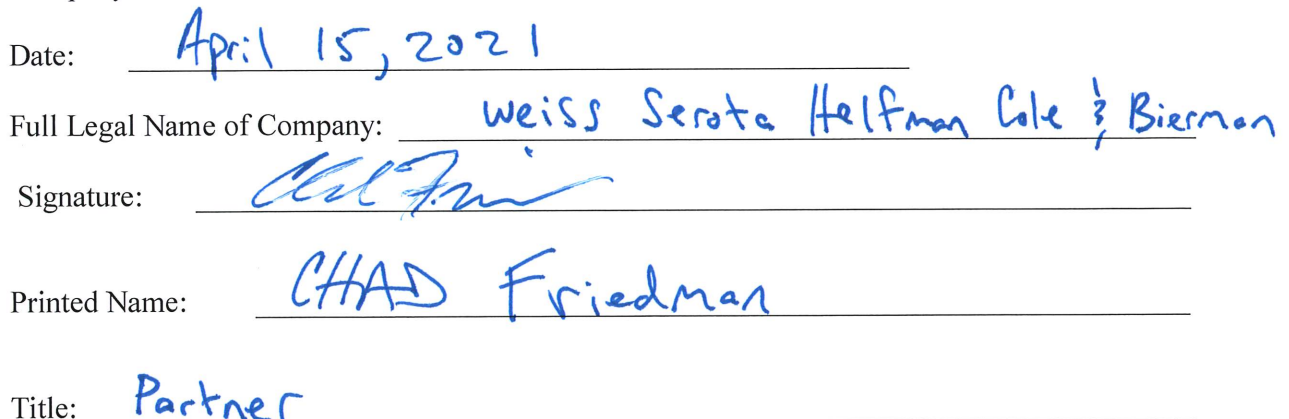 Date: April 15, 2021
Full Legal Name of Company: Weiss Serota Helfman Cole & Bierman
Signature:
Printed Name: CHAD Friedman
Title: Partner